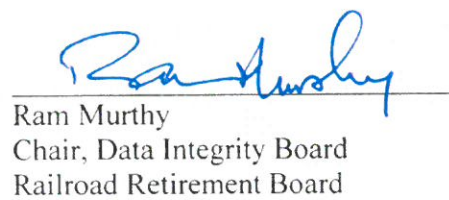 Ram Murthy
Ram Murthy
Chair, Data Integrity Board
Railroad Retirement Board